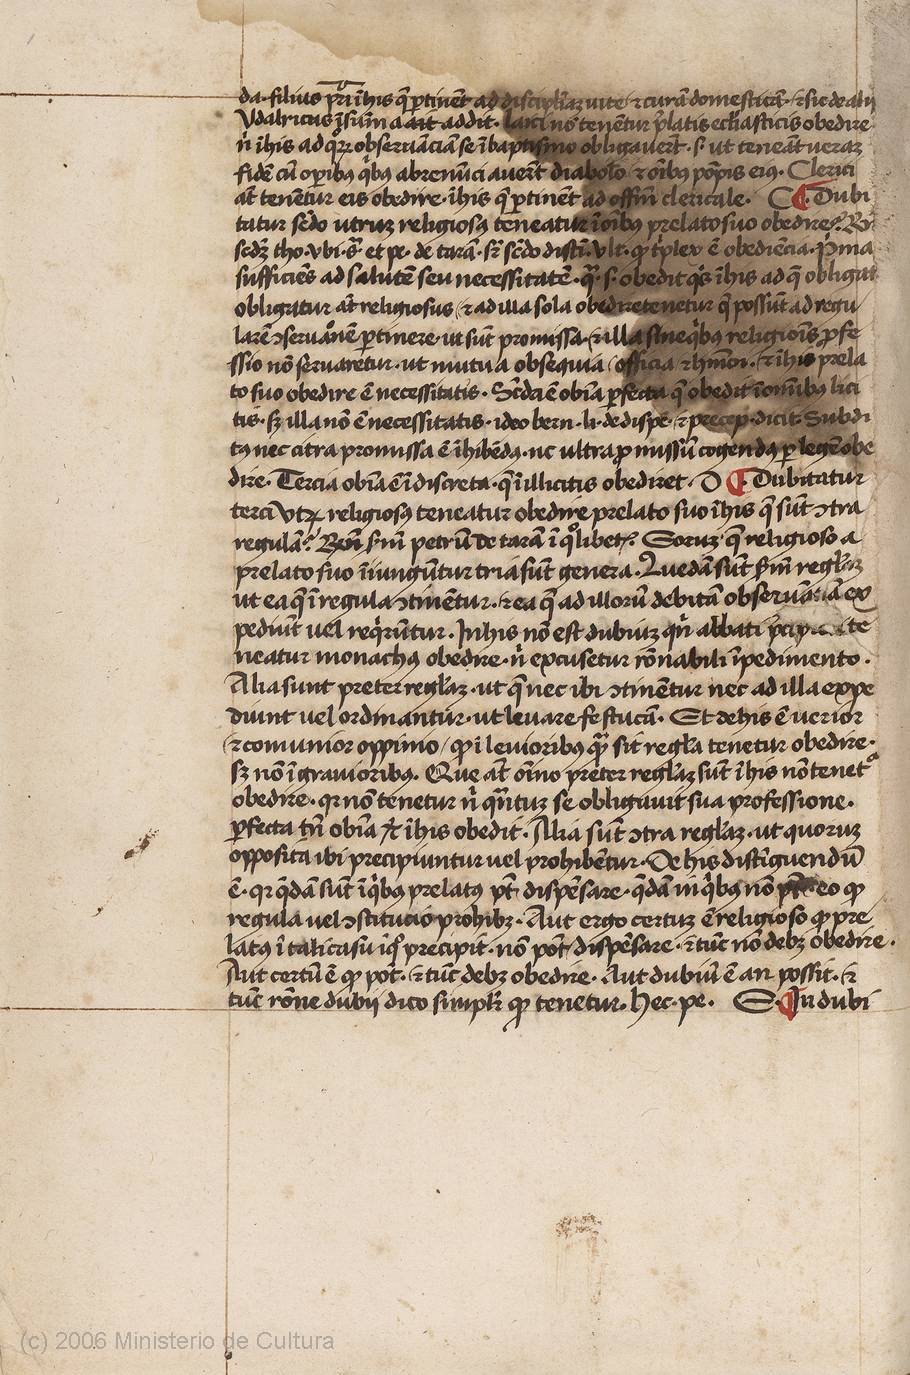 da. filius pr̄i ī his q̄ ꝑtinēt ad disciplīaꝫ vite ⁊ curā domesticā. ⁊ sic de alijs
Vdalricus addit. laici nō tenētur p̄latis ecclīasticis obedire
n̄ ī his ad qͦꝝ obseruāciam se ī baptismo obligauerūt. s. ut teneāt veraꝫ
fidē cū oꝑibꝰ qͥbꝰ abrenūciauerūt diabolo ⁊ oībꝰ pōpis eiꝰ. Clerici
at̄ tenētur eis obedire. ī his q̄ ꝑtinēt ad offm̄ clericale. C ¶ Dubi
tatur sc̄do utruꝫ religiosꝰ teneatur ī oībꝰ prelato suo obedire. Rͫ
scd̄ꝫ tho. vbi sͣ. et pe. de tarā. sr̄ sc̄do disti. vlt. ꝙ tͥplex ē obediēcia. pͥma
sufficiēs ad salutē seu necessitatē. qͣ. s. obedit qͥs ī his ad q̄ obligat
obligatur at̄ religiosus ⁊ ad illa sola obedire tenetur q̄ possūt ad regu
larē ↄseruac̄onē ꝑtinere. ut sūt promissa. ⁊ illa sine qͥbꝰ religiois ꝓfe
ssio nō seruaretur. ut mutua obsequia officia ⁊ hmōi. ⁊ ī his prela
to suo obedire ē necessitatis. Sc̄da ē obīa ꝑfecta q̄ obedit ī omībꝰ lici
tis. sꝫ illa nō ē necessitatis. ideo bern. li. de dispē. ⁊ precep. dicit Subdi
tꝰ nec citra promissa ē īhibēdꝰ. nc ultra ꝓmissū cogendꝰ ꝑ legē obe
dire. Tercia obīa ē īdiscreta. q̄ ī illicitis obediret. D ¶ Dubitatur
tercī vtꝝ religiosꝰ teneatur obedire prelato suo ī his q̄ sūt ↄtra
regulā. Rm̄ scm̄ petrū de tarā ī qͦlibet. Soruꝫ q̄ religioso a
prelato suo īiungūtur tria sūt genera. Quedā sūt scm̄ regl̄aꝫ
ut ea q̄ ī regula ↄtinētur. ⁊ ea q̄ ad illorū debitā obseruāciā ex
pediūt uel reqͥrūtur. In his nō est dubiuꝫ qn̄ abbati te
neatur monachꝰ obedire. n̄ excusetur rōnabili īpedimento.
Alia sunt preter regl̄aꝫ. ut q̄ nec ibi ↄtinētur nec ad illa expe
diunt uel ordinantur. ut leuare festucā. Et de his ē uerior
⁊ comunior oppinio ꝙ ī leuioribꝰ qͣꝫ sit regl̄a tenetur obedire.
sꝫ nō ī grauioribꝰ. Que at̄ oīno preter regl̄aꝫ sūt ī his nō tenetͬ
obedire. qꝛ nō tenetur n̄ qͣntuꝫ se obligauit sua professione.
ꝑfecta tn̄ obīa ⁊ ī his obedit. Alia sūt ↄtra regl̄aꝫ. ut quoruꝫ
opposita ibi precipiuntur uel prohibētur. De his distīguendū
ē. qꝛ qͣdā sūt ī qͥbꝰ prelatꝰ pt̄ dispēsare. qͣdā in qͥbꝰ nō pt̄. eo ꝙ
regula uel ↄstitucio prohibꝫ. Aut ergo certuꝫ ē religioso ꝙ pre
latꝰ ī tali casu īqͦ precipit. nō pōt dispēsare. ⁊ tūc nō debꝫ obedire.
Aut certū ē ꝙ pōt. ⁊ tūc debꝫ obedire. Aut dubiū ē an possit. ⁊
tūc rōne dubij dico simplr̄ ꝙ tenetur. hec. pe. E ¶ In dubi
(c) 2006 Ministerio de Cultura